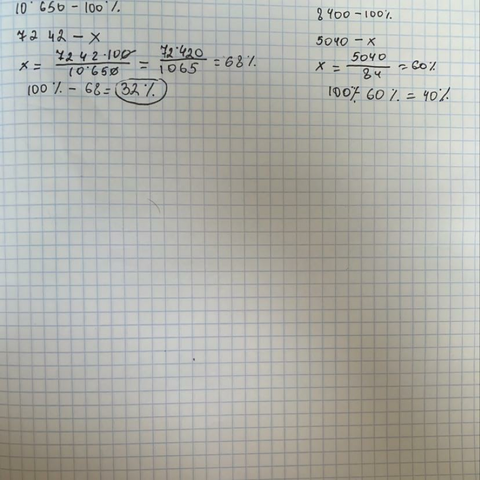 10˙650 - 100%
7242 - x
x = 7242·100 / 10˙650 = 72˙420 / 1065 = 68%
100% - 68 = 32%
8400 - 100%
5040 - x
x = 5040 / 84 = 60%
100% 60% = 40%